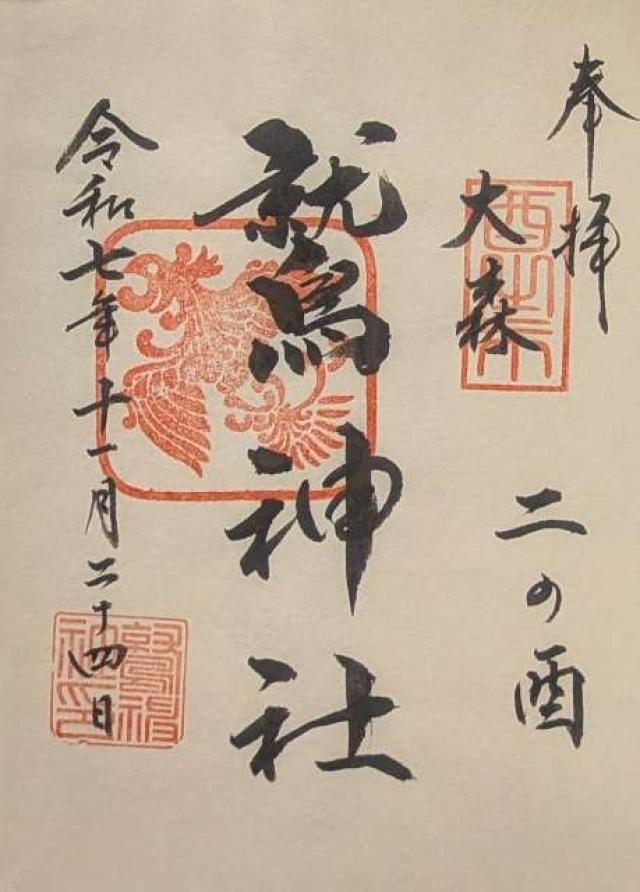 奉拝
大森
二の酉
鷲神社
令和七年十一月二十四日
酉之市